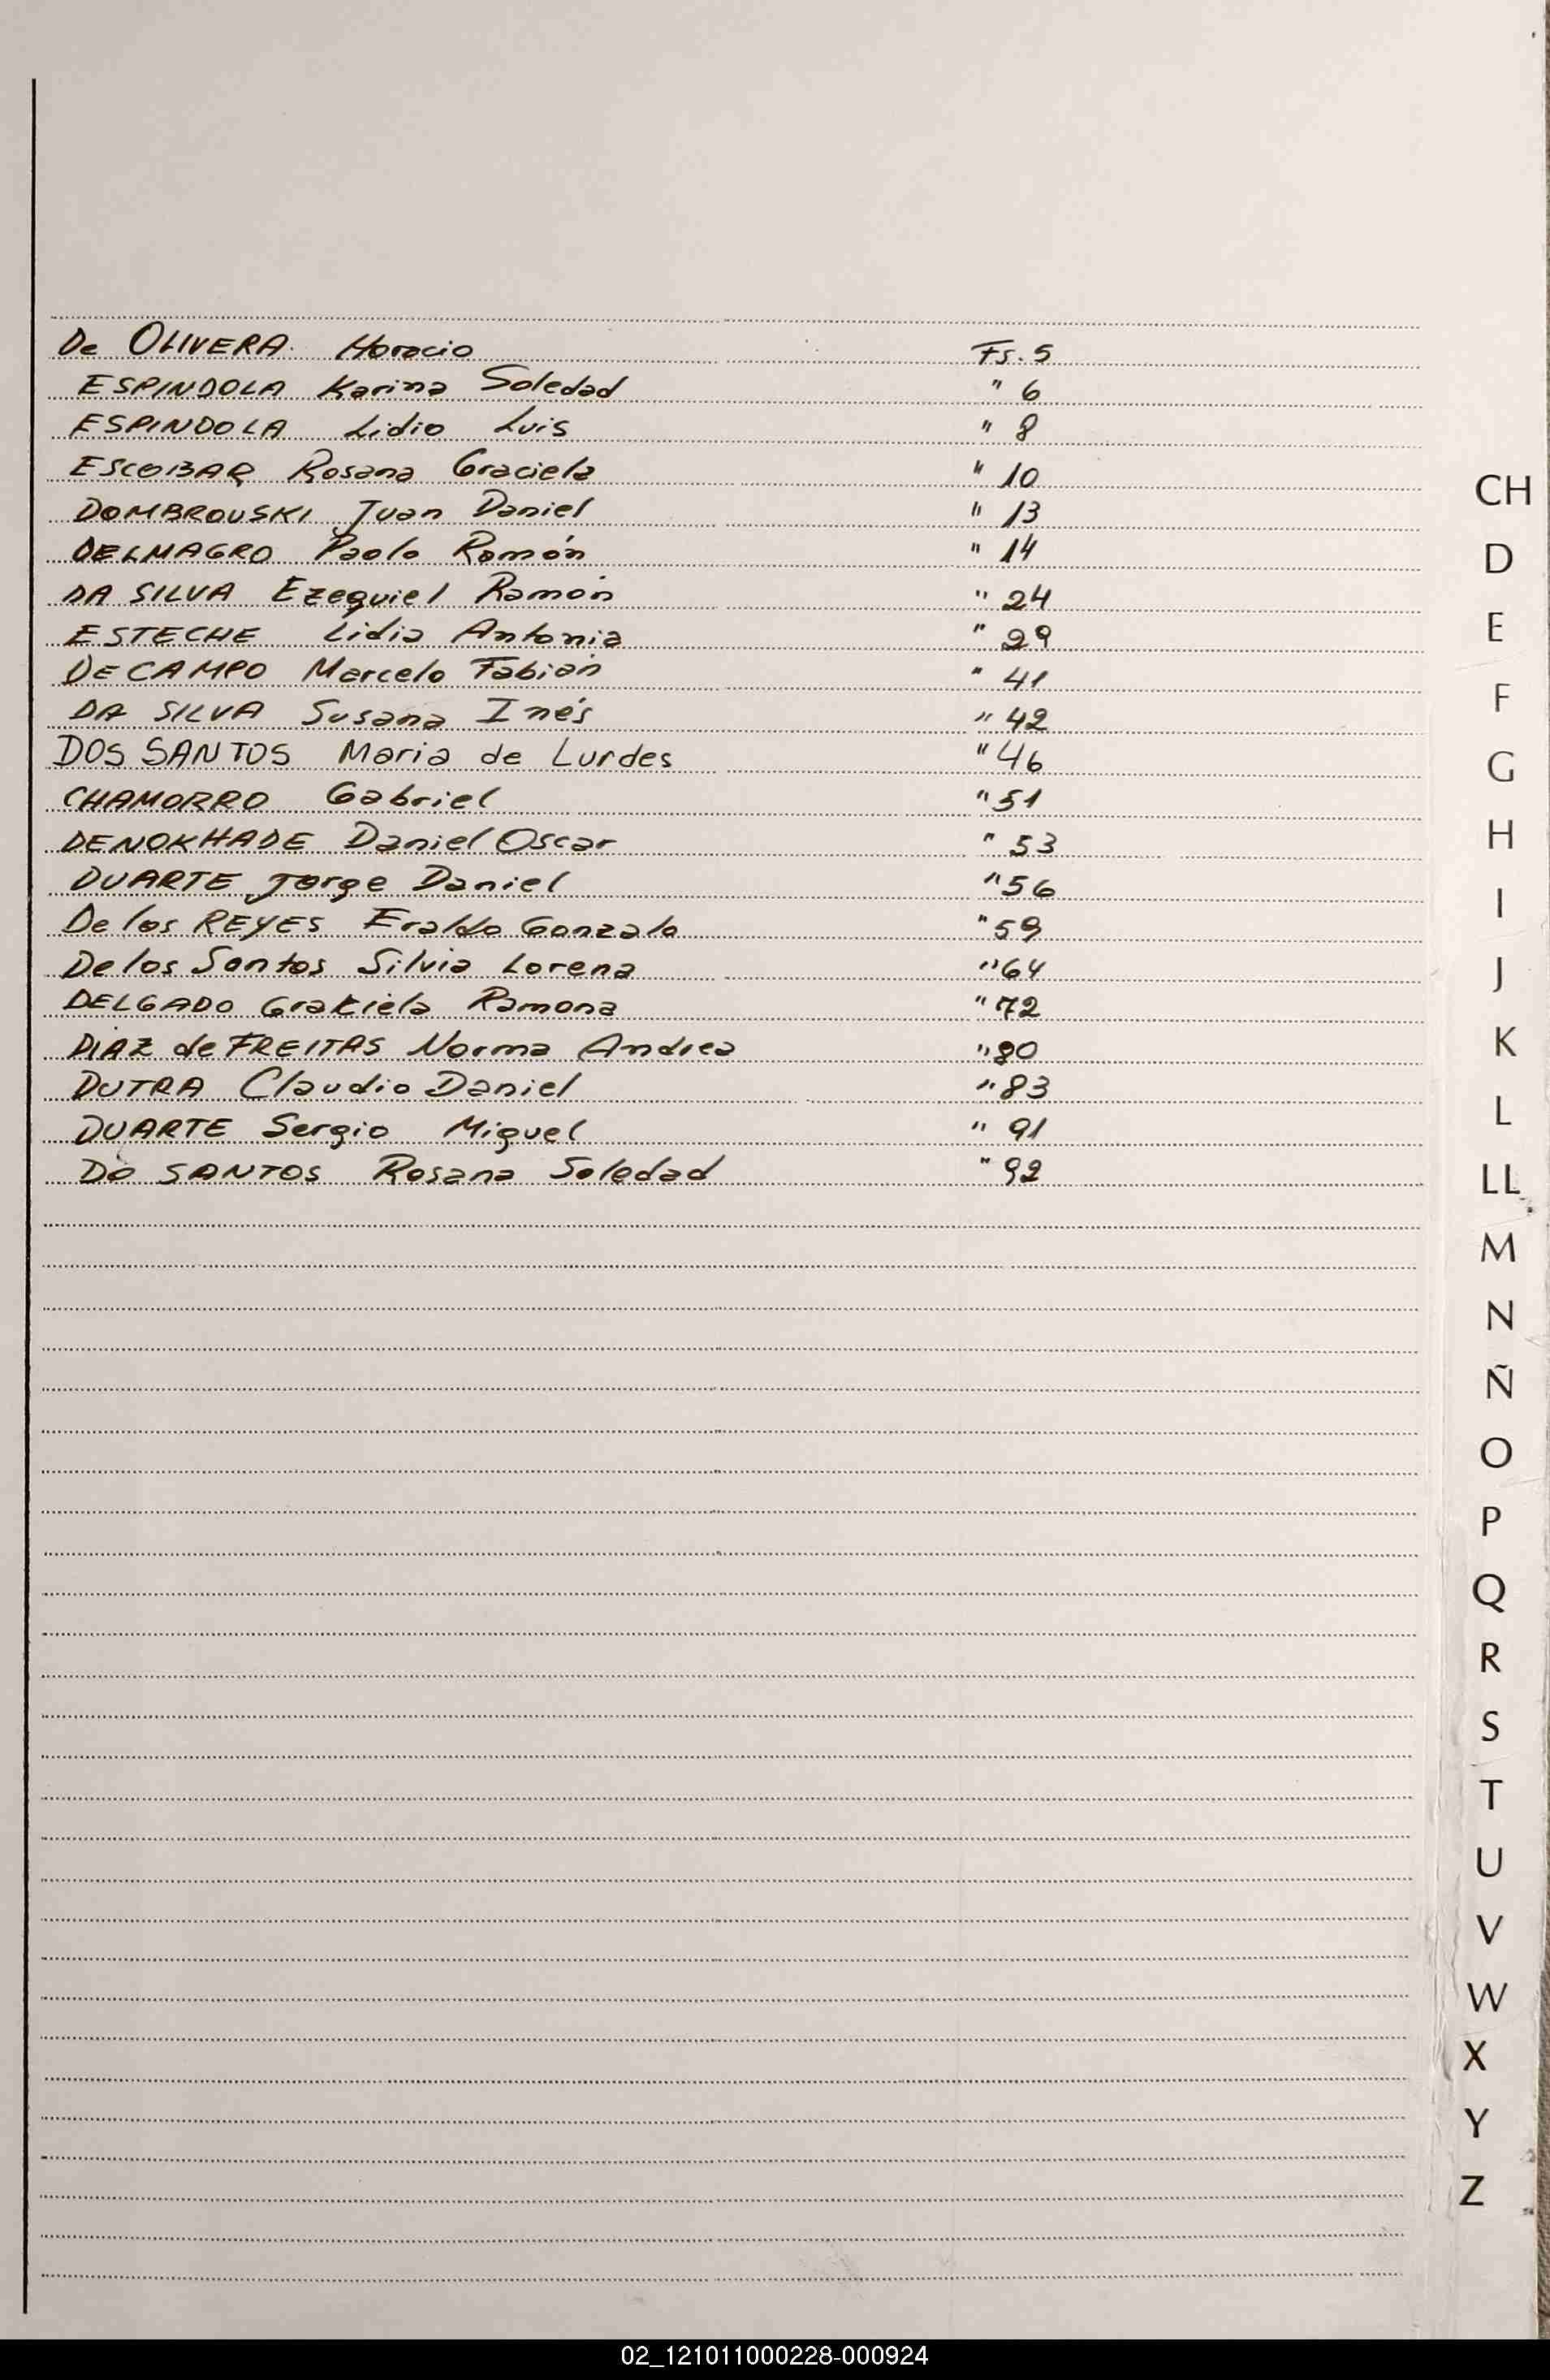 De OLIVERA Horacio Fs. 5
ESPINDOLA Karina Soledad " 6
ESPINDOLA Lidio Luis " 8
ESCOBAR Rosana Graciela " 10
DOMBROUSKI Juan Daniel " 13
DELMAGRO Paolo Ramón " 14
DA SILVA Ezequiel Ramón " 24
ESTECHE Lidia Antonia " 29
DE CAMPO Marcelo Fabián " 41
DA SILVA Susana Inés " 42
DOS SANTOS Maria de Lurdes " 46
CHAMORRO Gabriel " 51
DENOKHADE Daniel Oscar " 53
DUARTE Jorge Daniel " 56
De los REYES Eraldo Gonzalo " 59
De los Santos Silvia Lorena " 64
DELGADO Grakiela Ramona " 72
DIAZ de FREITAS Norma Andrea " 80
DUTRA Claudio Daniel " 83
DUARTE Sergio Miguel " 91
DO SANTOS Rosana Soledad " 92
CH
D
E
F
G
H
I
J
K
L
LL
M
N
Ñ
O
P
Q
R
S
T
U
V
W
X
Y
Z
02_121011000228-000924